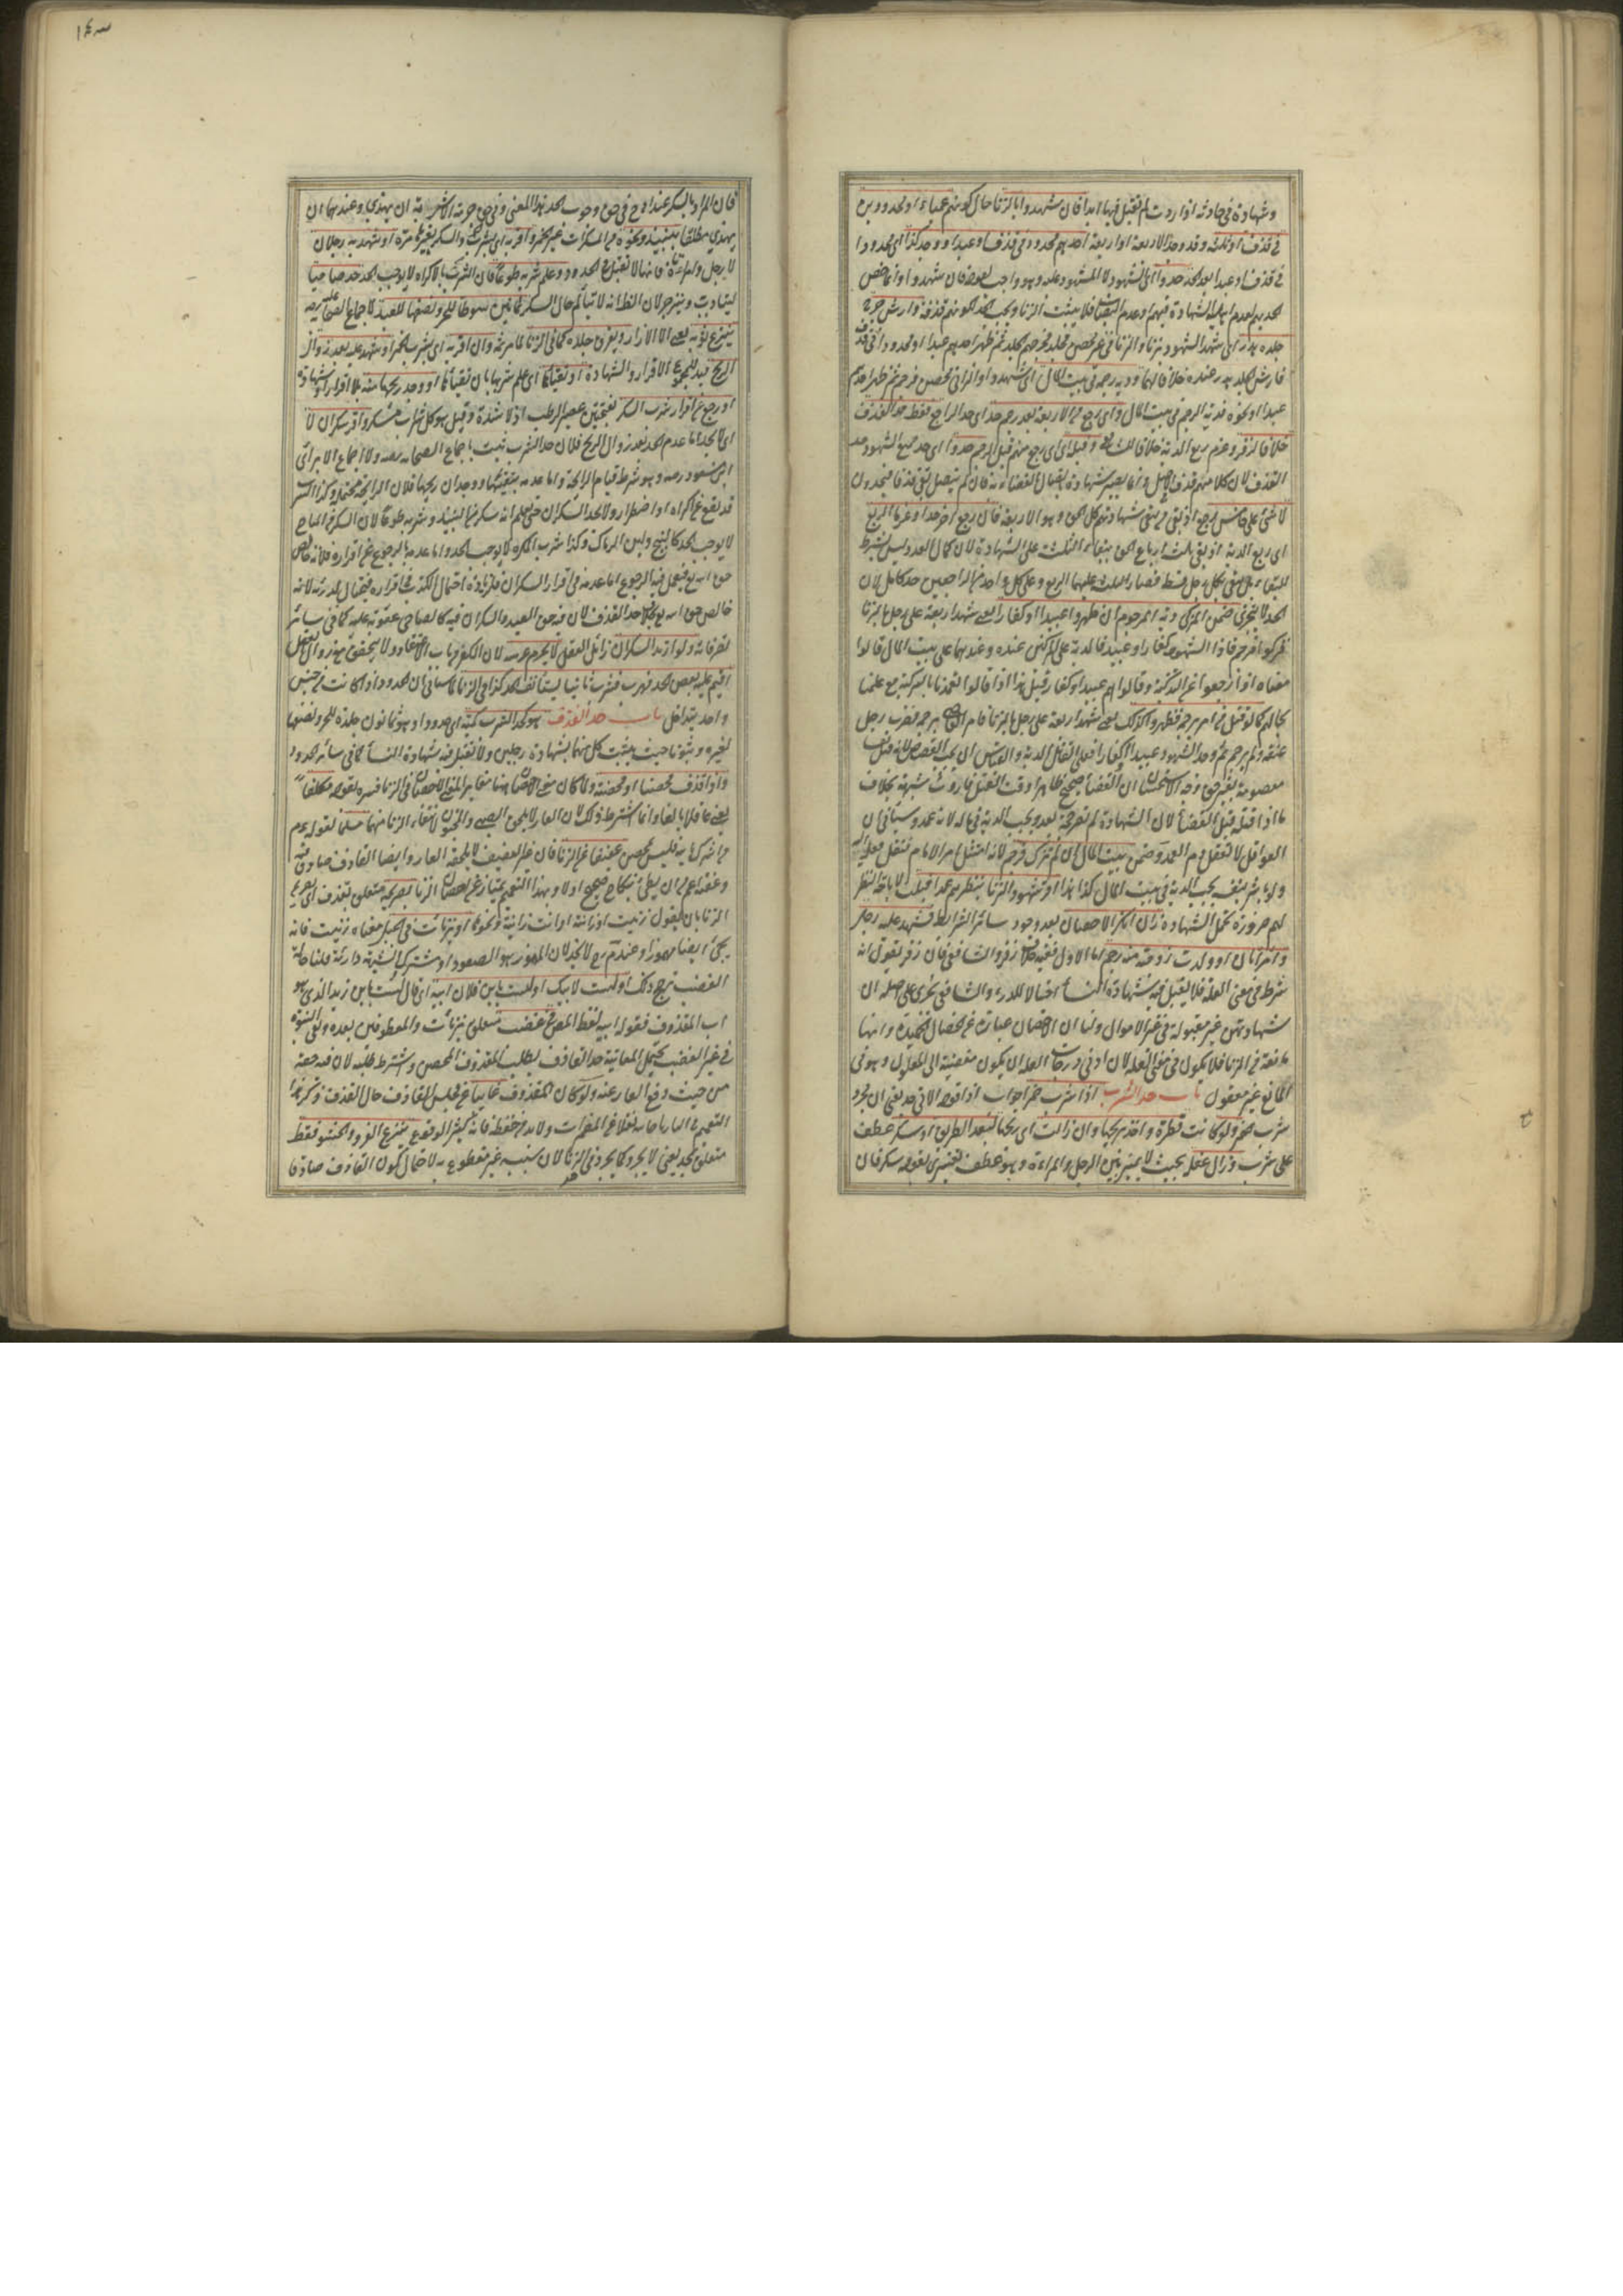 وشهادة في حادثة اذا ردت لم تقبل فيها ابدا فان شهدوا بالزنا حال كونهم عميانا او محدودين
في قذف او ثلثة وقد وجد الاربعة او اربعة احدهم محدود في قذف او عبد او وجد كذا اي محدودا
في قذف او عبدا بعد الحد حدوا اي الشهود لا المشهود عليه
الحد بهم لعدم اهلية الشهادة فيهم وعدم النصاب فلا يثبت الزنا ويجب الحد لكونهم قذفة وارش جرح
جلده هدر اي شهد الشهود بزنا والزاني غير محصن فجلد فجرحه الجلد ثم ظهر احدهم عبدا او محدودا في قذف
فارش الجلد هدر عنده خلافا لهما ودية رجمه في بيت المال اي شهدوا والزاني محصن فرجم ثم ظهر احدهم
عبدا او نحوه فدية الرجم في بيت المال واي رجع من الاربعة بعد رجم حد اي حد الراجع فقط حد القذف
خلافا لزفر وغرم ربع الدية خلافا للشافعي وقبله اي اي رجع منهم قبل الرجم حدوا اي حد جميع الشهود حد
القذف لان كلامهم قذف في الاصل وانما يصير شهادة باتصال القضاء به فان لم يتصل بقي قذفا فيحدون
لا شئ على خامس رجع اذ بقي من يبقى بشهادتهم كل الحق وهو الاربعة فان رجع اخر حدا وغرما الربع
اي ربع الدية اذ بقي ثلث ارباع الحق ببقاء الثلث على الشهادة لان كمال العدد ليس بشرط
للبقاء بل يبقى بكل رجل قسط فصار الثلث عليهما الربع وعلى كل واحد من الراجعين حد كامل لان
الحد لا يتجزى ضمن المزكي دية المرجوم ان ظهروا عبيدا او كفارا يعني شهد اربعة على رجل بالزنا
فزكوا فرجم فاذا الشهود كفار او عبيد فالدية على المزكين عنده وعندهما على بيت المال قالوا
معناه اذا رجعوا عن التزكية وقالوا هم عبيد او كفار وقيل هذا اذا قالوا تعمدنا بالتزكية مع علمنا
بحالهم كما لو قتل من امر برجمه فظهروا كذلك يعني شهد اربعة على رجل بالزنا فامر القاضي برجمه فضرب رجل
عنقه ولم يرجم ثم وجد الشهود عبيدا او كفارا فعلى القاتل الدية والقياس ان يجب القصاص لانه قتل نفسا
معصومة بغير حق وجه الاستحسان ان القضاء صحيح ظاهرا وقت القتل فاورث شبهة بخلاف
ما اذا قتله قبل القضاء لان الشهادة لم تصر حجة بعد ويجب الدية في ماله لانه عمد وسيأتي ان
العواقل لا تعقل دم العمد وضمن بيت المال ان لم يزك فرجم لانه امتثل امر الامام فنقل فعله اليه
ولو باشر بنفسه يجب الدية في بيت المال كذا هذا او شهود الزنا بنظرهم عمدا قبلت لاباحة النظر
لهم ضرورة تحمل الشهادة زان انكر الاحصان بعد وجود سائر الشرائط فشهد عليه رجل
وامرأتان او ولدت زوجته منه رجم اما الاول ففيه خلاف زفر والشافعي فان زفر يقول انه
شرط في معنى العلة فلا يقبل فيه شهادة النساء احتيالا للدرء والشافعي يجري على اصله ان
شهادتهن غير مقبولة في غير الاموال ولنا ان الاحصان عبارة عن الخصال الحميدة وانها
مانعة من الزنا فلا يكون في معنى العلة لان ادنى درجات العلة ان يكون مفضية الى المعلول وهو في
المانع غير معقول باب حد الشرب اذا شرب خمرا جواب اذا قوله الاتي حد يعني ان مجرد
شرب خمر ولو كانت قطرة واخذ بريحها وان زالت اي ريحها لبعد الطريق او سكر عطف
على شرب وزال عقله بحيث لا يميز بين الرجل والمرأة وهو عطف تفسيري لقوله سكر فان
فان المراد بالسكر عند ابي ح في حق وجوب الحد هذا المعنى وفي حق حرمة الاشربة ان يهذي وعندهما ان
يهذي مطلقا بنبيذ ونحوه من المسكرات غير الخمر واقر به اي بشرب الخمر او السكر بغيرها مرة او شهد به رجلان
لا رجل وامرأتان فانها لا تقبل في الحدود وعلم شربه طوعا فان الشرب بالاكراه لا يوجب الحد حد صاحيا
ليتأدب وينزجر لان الظ انه لا يتألم حال السكر ثمانين سوطا للحر ونصفها للعبد لاجماع الصحابة رضه
ينزع ثوبه يعني الا الازار ويفرق جلده كما في الزنا كما مر ثمة وان اقر به اي بشرب الخمر او شهد عليه بعد زوال
الريح قيد للمجموع الاقرار والشهادة او تقيأها اي علم شربها بان تقيأها او وجد ريحها منه بلا اقرار او شهادة
او رجع عن اقرار شرب السكر بفتحتين عصير الرطب اذا اشتد وقيل هو كل شراب مسكر واقر سكران لا
اي لا يحد اما عدم الحد بعد زوال الريح فلان حد الشرب ثبت باجماع الصحابة رضه ولا اجماع الا برأي
ابن مسعود رضه وهو شرط قيام الرائحة واما عدمه بتقيئها ووجدان ريحها فلان الرائحة محتملة وكذا الشرب
قد يقع عن اكراه او اضطرار ولا يحد السكران حتى يعلم انه سكر من النبيذ وشربه طوعا لان السكر من المباح
لا يوجب الحد كالبنج ولبن الرماك وكذا شرب المكره لا يوجب الحد واما عدمه بالرجوع عن اقراره فلانه خالص
حق الله تع فيعمل فيه الرجوع اما عدمه في اقرار السكران فلزيادة احتمال الكذب في اقراره فيحتال لدرئه لانه
خالص حق الله تع بخلاف حد القذف لان فيه حق العبد والسكران فيه كالصاحي عقوبة عليه كما في سائر
تصرفاته ولو ارتد السكران زائل العقل لا يحرم عرسه لان الكفر من باب الاعتقاد ولا يتحقق مع زوال العقل
اقيم عليه بعض الحد فهرب فشرب ثانيا يستأنف الحد كذا في الزنا لما سيأتي ان الحدود اذا كانت من جنس
واحد يتداخل باب حد القذف هو كحد الشرب كمية اي عددا وهو ثمانون جلدة للحر ونصفها
لغيره وثبوتا حيث يثبت كل منهما بشهادة رجلين ولا تقبل فيه شهادة النساء كما في سائر الحدود
واذا قذف محصنا او محصنة ولما كان معنى الاحصان هنا مغايرا لمعنى الاحصان في الزنا فسره بقوله مكلفا
يعني عاقلا بالغا وانما اشترط ذلك لان العار لا يلحق الصبي والمجنون لانتفاء الزنا منهما مسلما لقوله عم
من اشرك بالله فليس بمحصن عفيفا عن الزنا فان غير العفيف لا يلحقه العار وايضا القاذف صادق فيه
وعفته اعم من ان يطئ بنكاح صحيح او لا وبهذا التعميم يمتاز عن احصان الزنا بصريحه متعلق بقذف اي بصريح
الزنا بان يقول زنيت او زانية او انت زانية ونحوها او بزنأت في الجبل معناه زنيت فانه
يجئ ايضا مهموزا وعند م رح لا يحد لان المهموز هو الصعود او مشترك والشبهة دارئة قلنا حالة
الغضب ترجح ذلك او لست لابيك او لست بابن فلان ابيه اي قال لست بابن زيد الذي هو
اب المقذوف فقوله ابيه لفظ المص في غضب متعلق بزنأت والمعطوفين بعده ونفي النبوة
في غير الغضب يحتمل المعاتبة حد القاذف بطلب المقذوف المحصن واشترط طلبه لان فيه حقه
من حيث دفع العار عنه ولو كان المقذوف غائبا عن مجلس القاذف حال القذف ذكر هذا
التعميم في التتارخانية نقلا عن المضمرات ولا بد من حفظه فانه كثير الوقوع ينزع الفرو والحشو فقط
متعلق بحد يعني لا يجرد كما يجرد في الزنا لان سببه غير مقطوع به لاحتمال كون القاذف صادقا